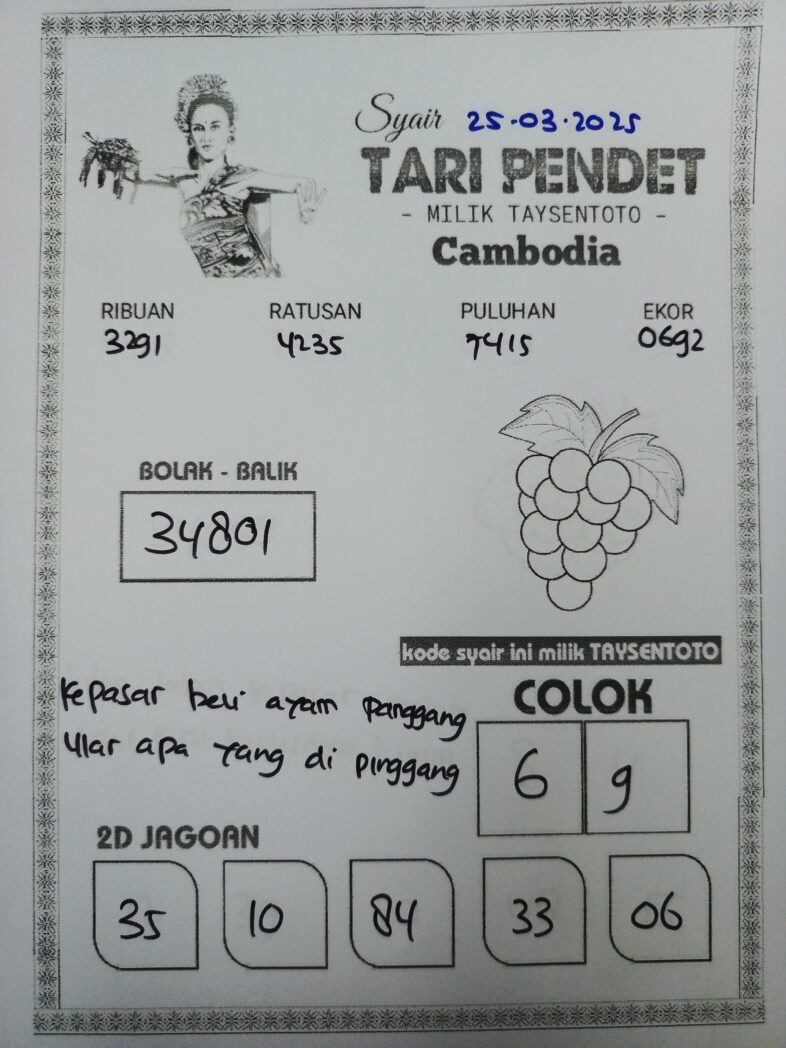 Syair 25.03.2025
TARI PENDET
- MILIK TAYSENTOTO -
Cambodia
RIBUAN RATUSAN PULUHAN EKOR
3291 4235 7415 0692
BOLAK - BALIK
34801
kode syair ini milik TAYSENTOTO
kepasar beli ayam panggang
Ular apa yang di pinggang
COLOK
6 9
2D JAGOAN
35 10 84 33 06